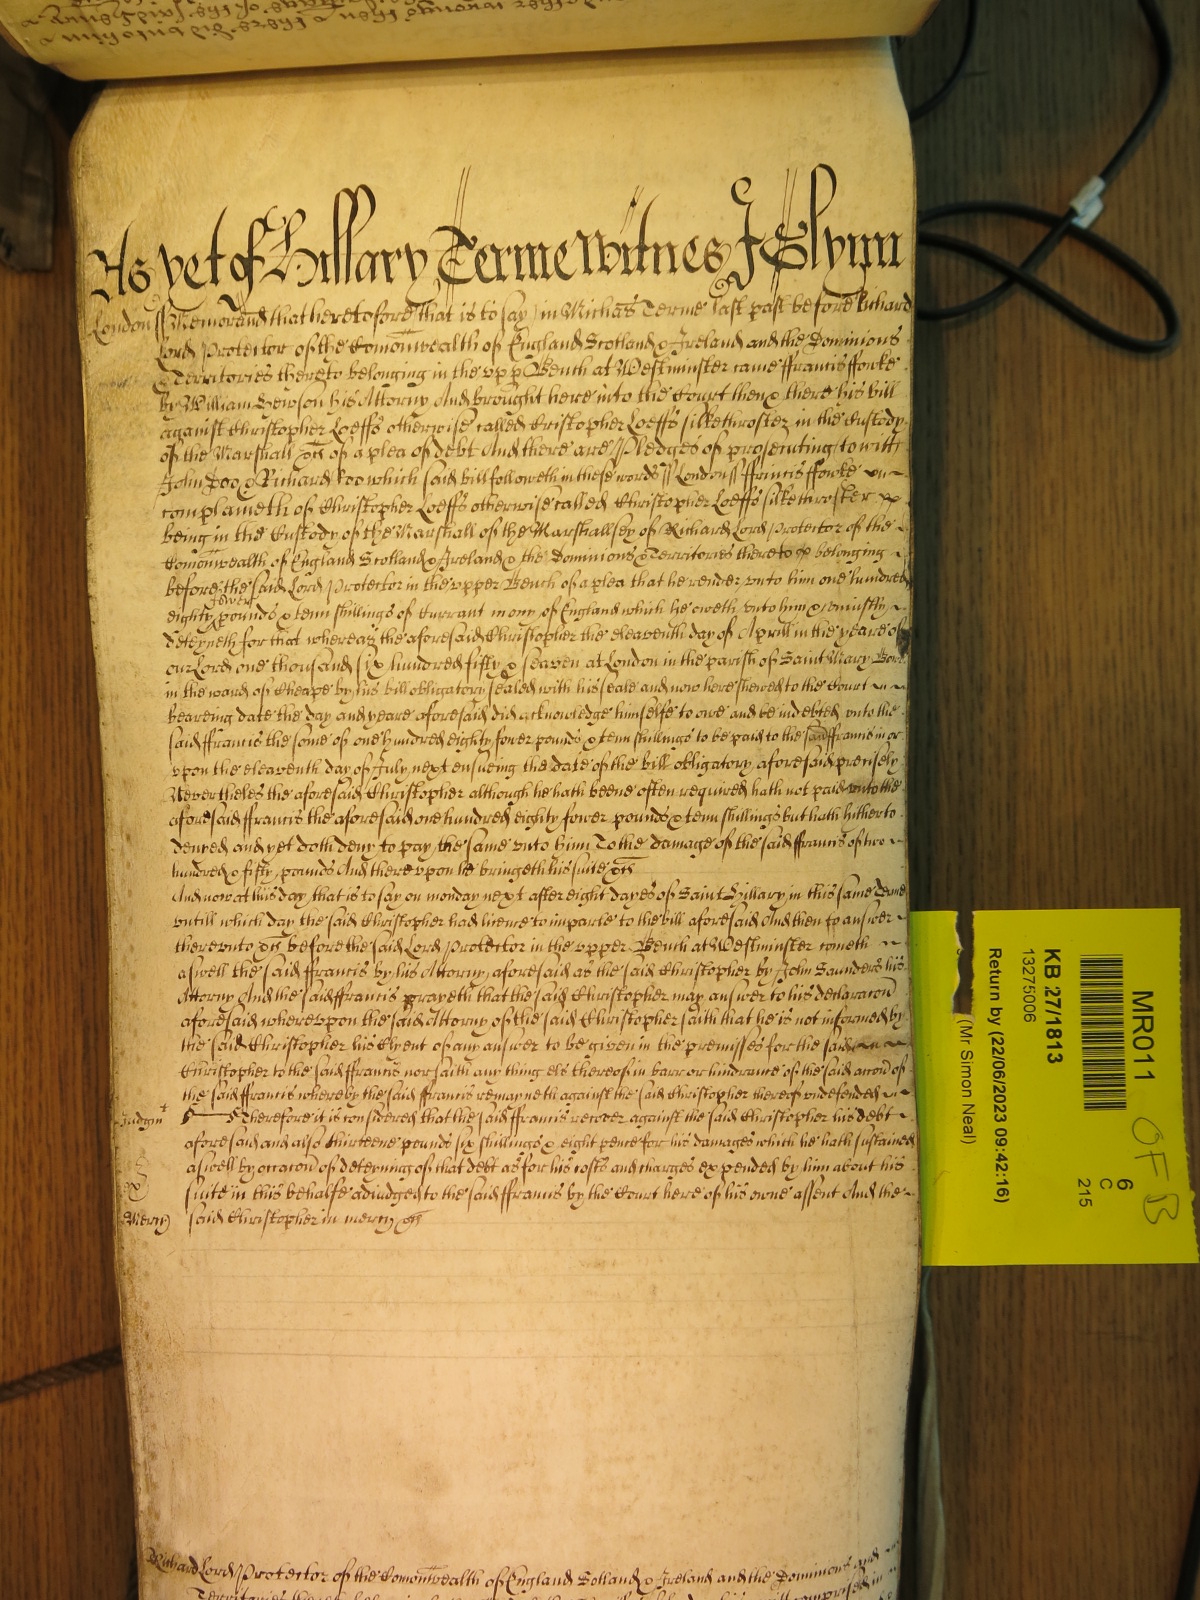 As yet of Hillary Terme Witnes J Glynn
London ss Memorand that heretofore that is to say in Michas Terme last past before Richard
Lord Protector of the Comonwealth of England Scotland & Ireland and the Dominions
& Territories thereto belonging in the upp Bench at Westminster came ffrancis ffowke
by William Hewson his Attorny And brought here into the Court then & there his bill
against Christopher Loeffs otherwise called Cristopher Loeffs silkethroster in the Custody
of the Marshall &c of a plea of debt And there are Pledges of prosecuting to witt
John Doo & Richard Roo which said bill followeth in these words ss London ss ffrancis ffowke
complaineth of Christopher Loeffs otherwise called Christopher Loeffs silkethroster
being in the Custody of the Marshall of the Marshallsey of Richard Lord Protector of the
Comonwealth of England Scotland & Ireland & the Dominions & Territories thereto belonging
before the said Lord Protector in the upper Bench of a plea that he render unto him one hundred
eighty fower pounds & tenn shillings of Currant mony of England which he oweth unto him & uniustly
deteyneth for that whereas the aforesaid Christopher the eleaventh day of Aprill in the yeare of
our Lord one thousand six hundred fifty & seaven at London in the parish of Saint Mary Bowe
in the ward of Cheape by his bill obligatory sealed with his seale and now here shewed to the Court
beareing date the day and yeare aforesaid did acknowledge himselfe to owe and be indebted unto the
said ffrancis the some of one hundred eighty fower pounds & tenn shillings to be paid to the said ffrancis in or
upon the eleaventh day of July next ensueing the date of the bill obligatory aforesaid precisely
Nevertheles the aforesaid Christopher although he hath beene often required hath not paid unto the
aforesaid ffrancis the aforesaid one hundred eighty fower pounds & tenn shillings but hath hitherto
denyed and yet doth deny to pay the same unto him To the damage of the said ffrancis of two
hundred & fifty pounds And thereupon he bringeth his suite &c
And now at this day that is to say on monday next after eight dayes of Saint Hillary in this same Terme
untill which day the said Christopher had licence to imparle to the bill aforesaid And then to answer
thereunto &c before the said Lord Protector in the upper Bench at Westminster cometh
aswell the said ffrancis by his Attorny aforesaid as the said Christopher by John Saunders his
Attorny And the said ffrancis prayeth that the said Christopher may answer to his declaracon
aforesaid whereupon the said Attorny of the said Christopher saith that he is not informed by
the said Christopher his Clyent of any answer to be given in the premisses for the said
Christopher to the said ffrancis nor saith any thing els thereof in barr or hindrance of the said accon of
the said ffrancis whereby the said ffrancis remayneth against the said Christopher thereof undefended
Judgmt Therefore it is considered that the said ffrancis recover against the said Christopher his debt
aforesaid and also thirteene pounds six shillings & eight pence for his damages which he hath sustained
aswell by occacon of deteyning of that debt as for his costs and charges expended by him about his
suite in this behalfe adiudged to the said ffrancis by the Court here of his owne assent And the
Mercy said Christopher in mercy &c
Richard Lord Protector of the Comonwealth of England Scotland & Ireland and the Dominions and
MR011
6
C
215
KB 27/1813
13275006
Return by (22/06/2023 09:42:16)
(Mr Simon Neal)
OFB